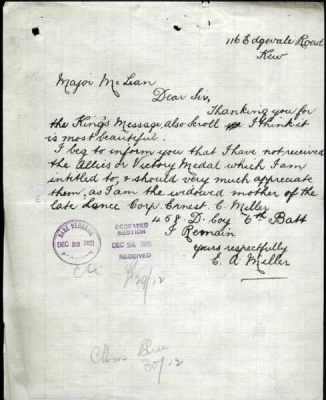 116 Edgevale Road
Kew
Major McLean
Dear Sir,
Thanking you for
the King's Message, also Scroll I think it
is most beautiful.
I beg to inform you that I have not received
the Allies or Victory Medal which I am
intitled to, & should very much appreciate
them, as I am the widowed mother of the
late Lance Corp. Ernest. C. Miller
458. D. Coy 6th Batt
I Remain
yours respectfully
E. A. Miller
BASE RECORDS
DEC 29 1921
DECEASED
SECTION
DEC 24 1921
RECEIVED
29/12
30/12